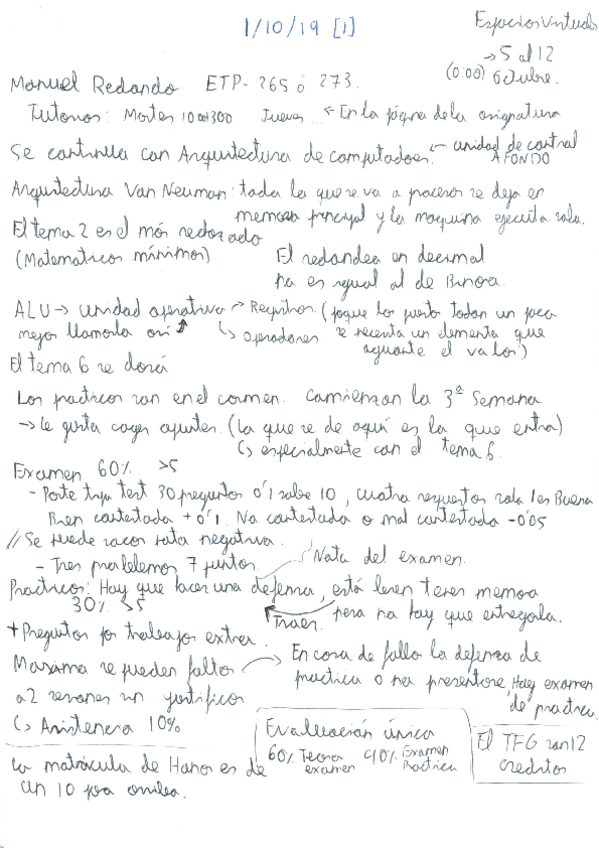 1/10/19 [1]
Espacios Virtuales
→ 5 al 12
(0:00) Octubre.
Manuel Redondo ETP-265 ó 273.
Tutorias: Martes 10 a 1300 Jueves ← En la página de la asignatura
Se continua con Arquitectura de computadores. ← unidad de control
A FONDO
Arquitectura Von Neuman: toda lo que se va a procesar se deja en
memoria principal y la maquina ejecuta sola.
El tema 2 es el más
(Matematicos mínimos)
El redondeo en decimal
no es igual al de Binario.
ALU → unidad operativa → Registros. (porque los puertos todan un poco
mejor llamarla así ↳ Operadores se necesita un elemento que
aguante el valor)
El tema 6 se dará
Las practicas son en el carmen. Comienzan la 3ª Semana
→ Le gusta coger apuntes. (Lo que se de aquí es lo que entra)
↳ especialmente con el tema 6.
Examen 60% >5
- Parte tipo test 30 preguntas 0'1 sobre 10, cuatro respuestas solo 1 es Buena
Bien contestada +0'1. No contestada o mal contestada -0'05
// Se puede sacar nota negativa.
- Tres problemas 7 puntos.
Nota del examen.
Practicas: Hay que hacer una defensa, está bien tener memoria
30% >5
Traer.
pero no hay que entregarla.
+ Preguntas por trabajos extra.
Maximo se pueden faltar
a 2 sesiones sin justificar
↳ Asistencia 10%
En caso de fallo la defensa de
practica o no presentarse, Hay examen
de practica.
Evaluación única
60% Teoria examen 40% Examen Practica
El TFG son 12
creditos
La matrícula de Honor es de
un 10 para arriba.